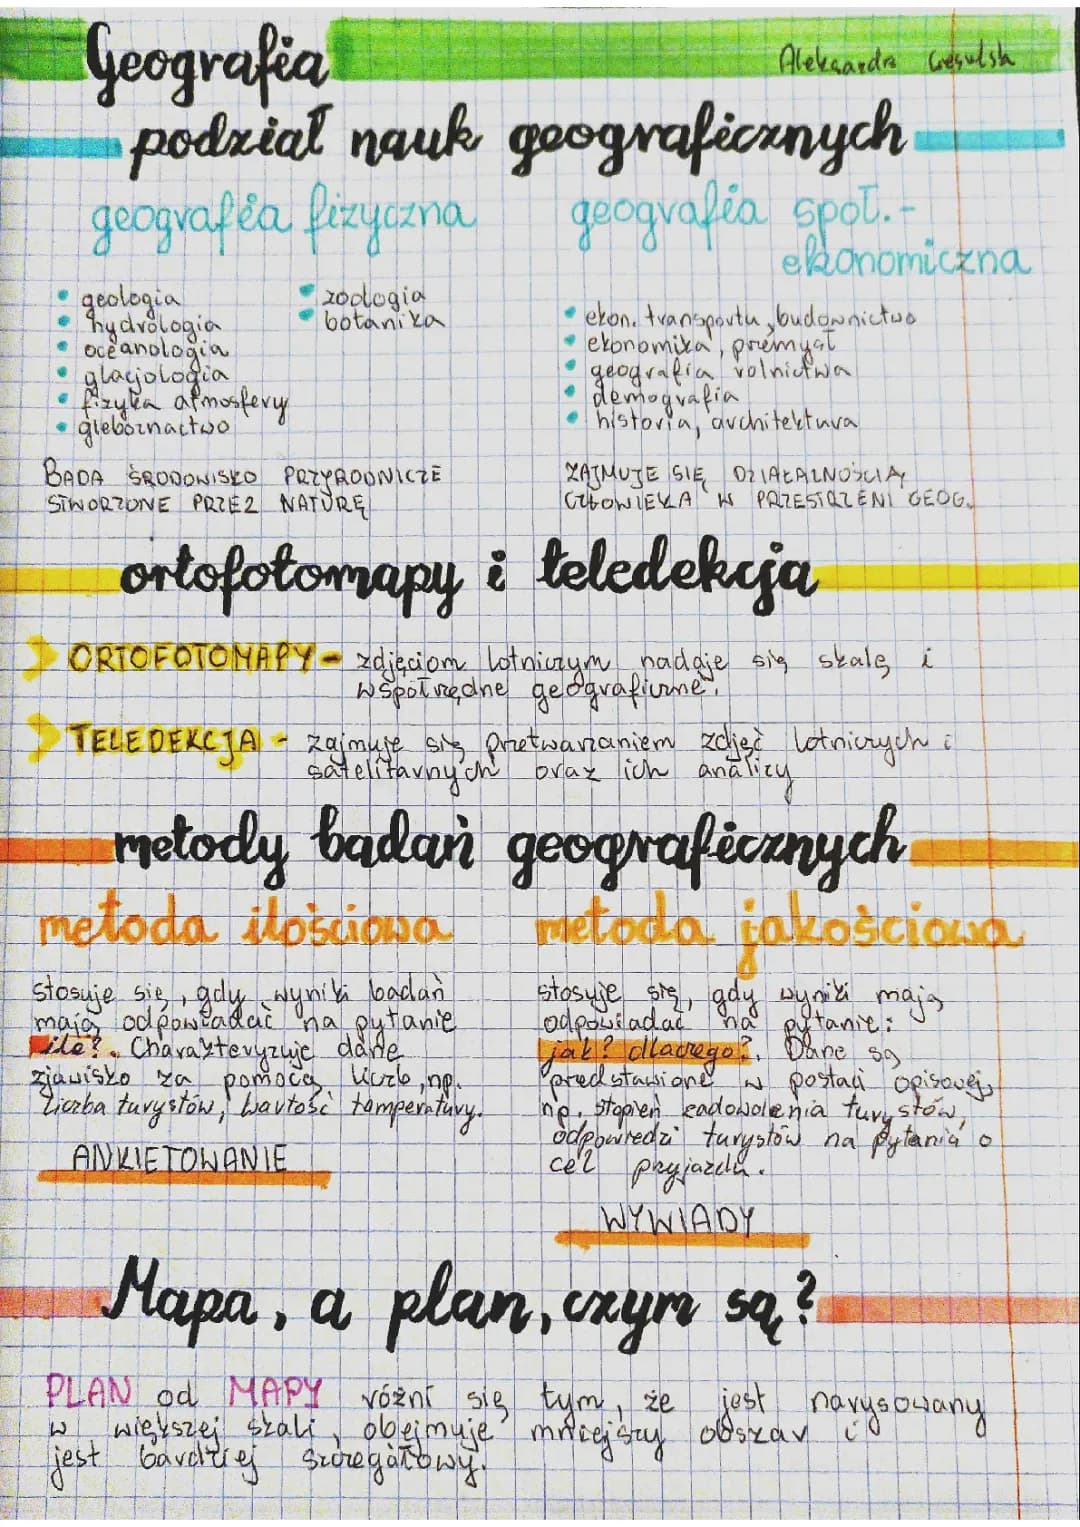 Geografia
Aleksandra
podział nauk geograficznych
geografia fizyczna
geologia
hydrologia
oceanologia
glacjologia
fizyka atmosfery
gleboznactwo
zoologia
botanika
BADA ŚRODOWISKO PRZYRODNICZE
STWORZONE PRZEZ NATURĘ
geografia społ.-
ekonomiczna
ekon. transportu, budownictwo
ekonomika, przemysł
geografia rolnictwa
demografia
historia, architektura
ZAJMUJE SIĘ DZIAŁALNOŚCIĄ
CZŁOWIEKA W PRZESTRZENI GEOG.
ortofotomapy i teledekcja
ORTOFOTOMAPY - zdjęciom lotniczym nadaje się skalę i
współrzędne geograficzne.
TELEDEKCJA - zajmuje się przetwarzaniem zdjęć lotniczych i
satelitarnych oraz ich analizy
metody badań geograficznych
metoda ilościowa
stosuje się, gdy wyniki badań
mają odpowiadać na pytanie
ile?. Charakteryzuje dane
zjawisko za pomocą liczb, np.
liczba turystów, wartość temperatury.
ANKIETOWANIE
metoda jakościowa
stosuje się, gdy wyniki mają
odpowiadać na pytanie:
jak? dlaczego?. Dane są
przedstawione w postaci opisowej,
np. stopień zadowolenia turystów,
odpowiedzi turystów na pytania o
cel przyjazdu.
WYWIADY
Mapa, a plan, czym są?
PLAN od MAPY różni się tym, że jest narysowany
w większej skali, obejmuje mniejszy obszar i
jest bardziej szczegółowy.